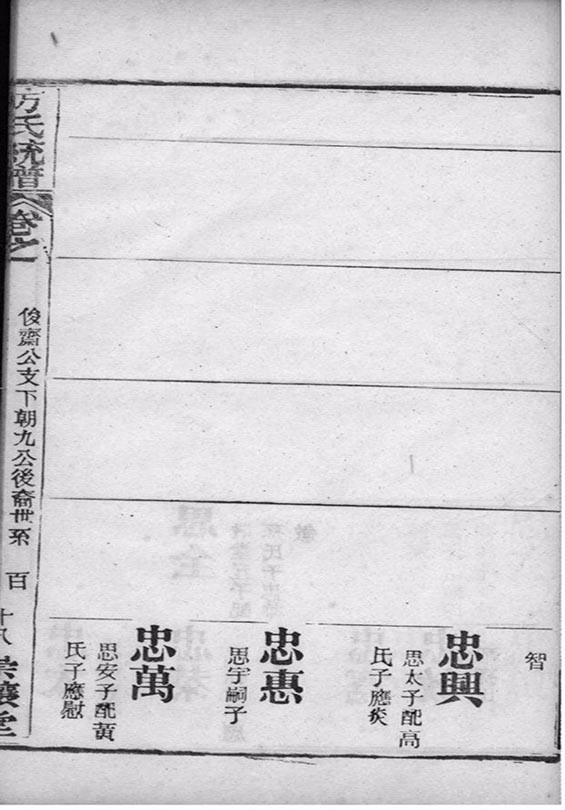 智
忠興
思太子配高
氏子應炎
忠惠
思宇嗣子
忠萬
思安子配黃
氏子應慰
方氏統譜
卷之一
俊齋公支下朝九公後裔世系
百
十八
堂